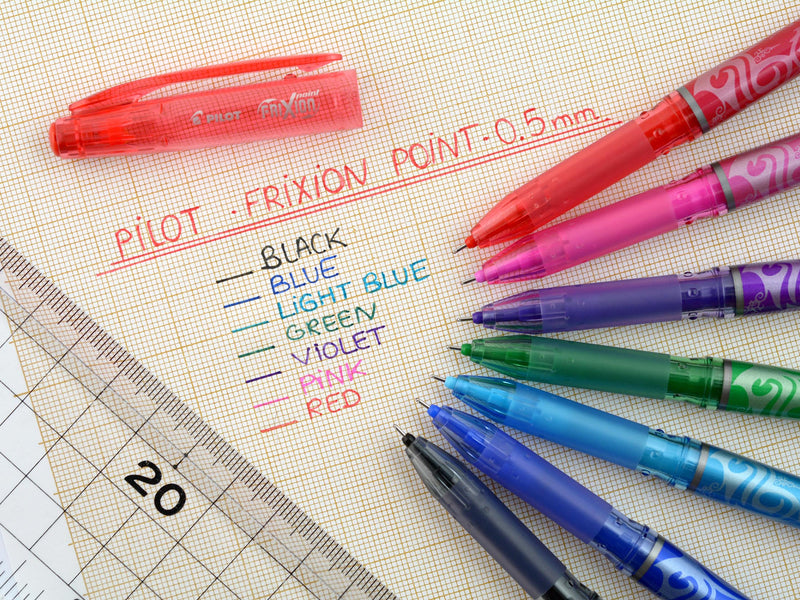 PILOT
FRIXION point
PILOT - FRIXION POINT - 0.5mm.
BLACK
BLUE
LIGHT BLUE
GREEN
VIOLET
PINK
RED
20